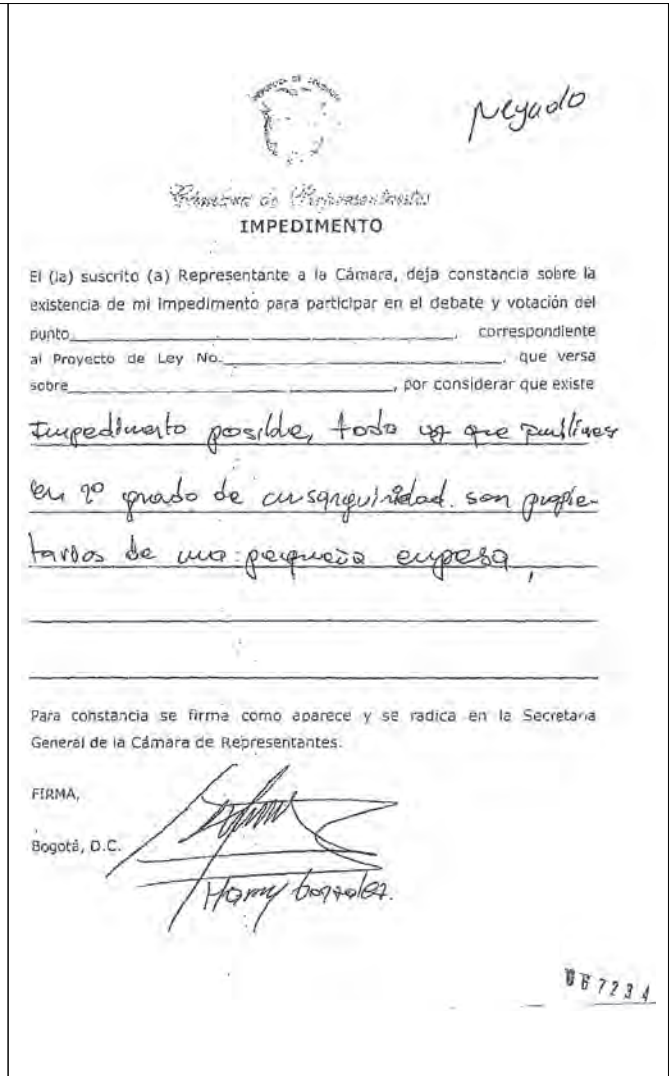 REPUBLICA DE COLOMBIA
negado
Cámara de Representantes
IMPEDIMENTO
El (la) suscrito (a) Representante a la Cámara, deja constancia sobre la
existencia de mi impedimento para participar en el debate y votación del
punto____________________, correspondiente
al Proyecto de Ley No.____________________, que versa
sobre____________________, por considerar que existe
Impedimento posible, toda vez que familiares
en 2º grado de consanguinidad son propie-
tarios de una pequeña empresa,
Para constancia se firma como aparece y se radica en la Secretaria
General de la Cámara de Representantes.
FIRMA,
Bogotá, D.C.
Harry Gonzalez.
067234